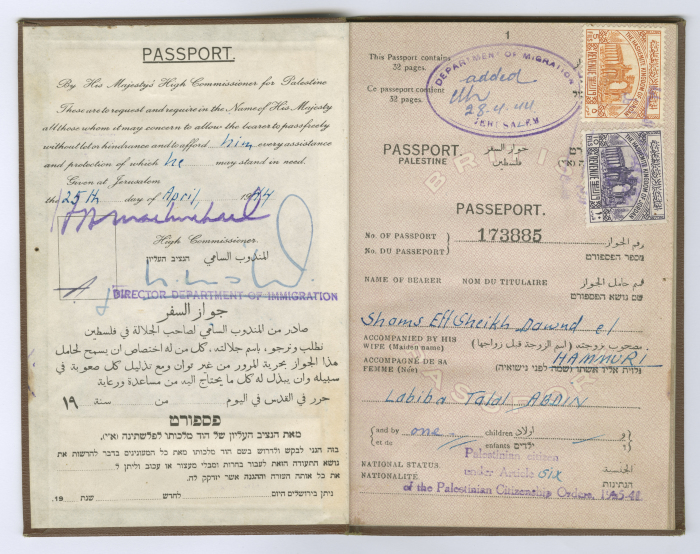 PASSPORT.
By His Majesty's High Commissioner for Palestine
These are to request and require in the Name of His Majesty
all those whom it may concern to allow the bearer to pass freely
without let or hindrance and to afford him every assistance
and protection of which he may stand in need.
Given at Jerusalem
the 25th day of April, 1944
High Commissioner.
המנדוב הסאמי הנציב העליון
DIRECTOR DEPARTMENT OF IMMIGRATION
جواز السفر
صادر من المندوب السامي لصاحب الجلالة في فلسطين
نطلب ونرجو، باسم جلالته، كل من له اختصاص ان يسمح لحامل
هذا الجواز بحرية المرور من غير توان ومع تذليل كل صعوبة في
سبيله وان يبذل له كل ما يحتاج اليه من مساعدة ورعاية
حرر في القدس في اليوم من سنة ١٩
פספורט
מאת הנציב העליון של הוד מלכותו לפלשתינה א״י.
בזה הנני לבקש ולדרוש בשם הוד מלכותו מאת כל המעונינים בדבר להרשות את
נושא התעודה הזאת לעבור בחרות ומבלי מעצור או עכוב וליתן לו
את כל אותה העזרה וההגנה אשר יזדקק לה.
ניתן בירושלים היום לחדש שנת 19
1
This Passport contains
32 pages.
Ce passeport contient
32 pages.
DEPARTMENT OF MIGRATION
added
28.4.44
JERUSALEM
THE HASHEMITE KINGDOM OF JORDAN
REVENUE
THE HASHEMITE KINGDOM OF JORDAN
REVENUE
BRITISH
PASSPORT. جواز السفر
PALESTINE فلسطين
PASSEPORT.
No. OF PASSPORT رقم الجواز
173885
No. DU PASSEPORT מספר הפספורט
NAME OF BEARER NOM DU TITULAIRE قسم حامل الجواز
שם נושא הפספורט
Shams Eff Sheikh Dawud el
ACCOMPANIED BY HIS
WIFE (Maiden name) مصحوب بزوجته (اسم الزوجة قبل زواجها)
HAMMURI
ACCOMPAGNÉ DE SA
FEMME (Née) מלוה אליו אשתו (שמה לפני נישואיה)
Labiba Talal ABDIN
and by one children اولاد و
et de enfants ילדים
Palestinian citizen
NATIONAL STATUS الجنسية
under Article SIX
NATIONALITÉ הנתינות
of the Palestinian Citizenship Orders, 1925-41